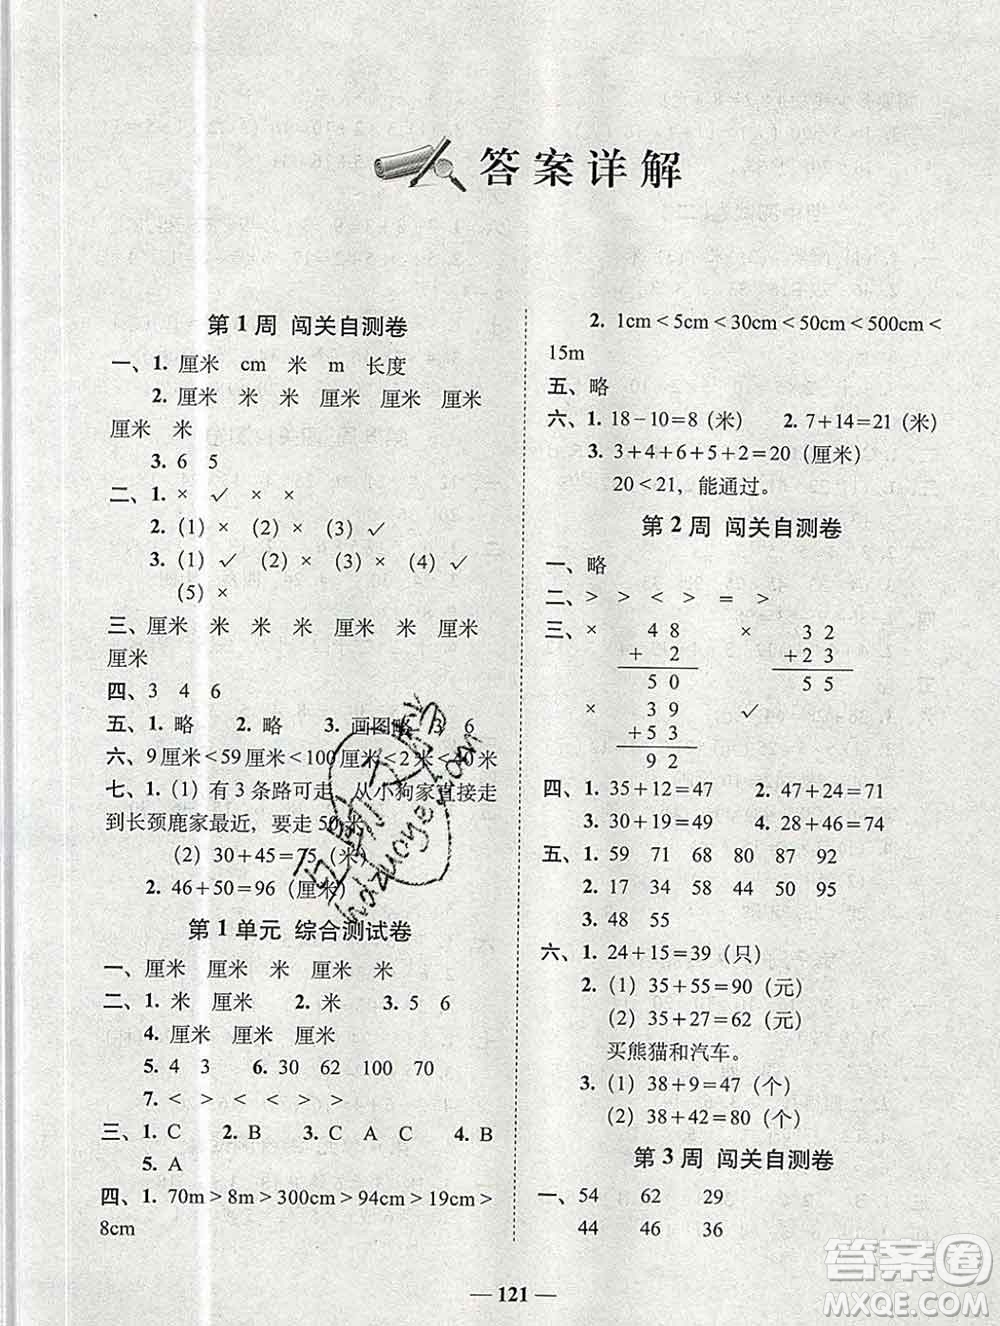 答案详解
第1周 闯关自测卷
一、1. 厘米 cm 米 m 长度
2. 厘米 米 米 厘米 厘米 厘米
厘米 米
3. 6 5
二、1. × ✓ × ×
2. (1) × (2) × (3) ✓
3. (1) ✓ (2) × (3) × (4) ✓
(5) ×
三、厘米 米 米 米 厘米 米 厘米
厘米
四、3 4 6
五、1. 略 2. 略 3. 画图略 3 6
六、9厘米<59厘米<100厘米<2米<40米
七、1. (1) 有3条路可走，从小狗家直接走
到长颈鹿家最近，要走50米。
(2) 30+45=75（米）
2. 46+50=96（厘米）
第1单元 综合测试卷
一、厘米 厘米 米 厘米 厘米 米
二、1. 米 厘米 2. 米 3. 5 6
4. 厘米 厘米 厘米
5. 4 3 6. 30 62 100 70
7. < > < < > >
三、1. C 2. B 3. C A C 4. B
5. A
四、1. 70m>8m>300cm>94cm>19cm>
8cm
2. 1cm<5cm<30cm<50cm<500cm<
15m
五、略
六、1. 18-10=8（米） 2. 7+14=21（米）
3. 3+4+6+5+2=20（厘米）
20<21，能通过。
第2周 闯关自测卷
一、略
二、> > < < = >
三、× 48 × 32
+ 2 +23
50 55
× 39 ✓
+53
92
四、1. 35+12=47 2. 47+24=71
3. 30+19=49 4. 28+46=74
五、1. 59 71 68 80 87 92
2. 17 34 58 44 50 95
3. 48 55
六、1. 24+15=39（只）
2. (1) 35+55=90（元）
(2) 35+27=62（元）
买熊猫和汽车。
3. (1) 38+9=47（个）
(2) 38+42=80（个）
第3周 闯关自测卷
一、54 62 29
44 46 36
— 121 —
答案圈
MXQE.COM